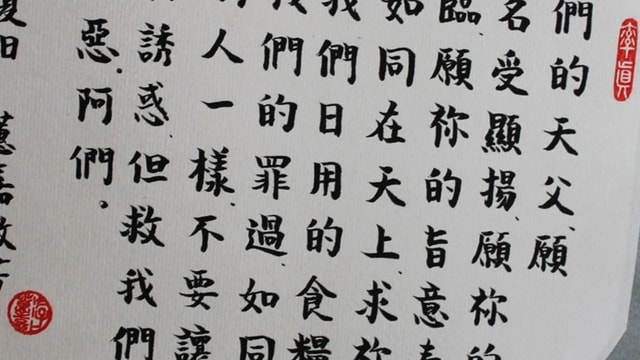 們的天父、願
名受顯揚、願祢的
臨、願祢的旨意
如同在天上、求祢
我們日用的食糧
我們的罪過、如同
人一樣、不要讓
誘惑、但救我們
惡、阿們。
夏日 蕙嘉敬